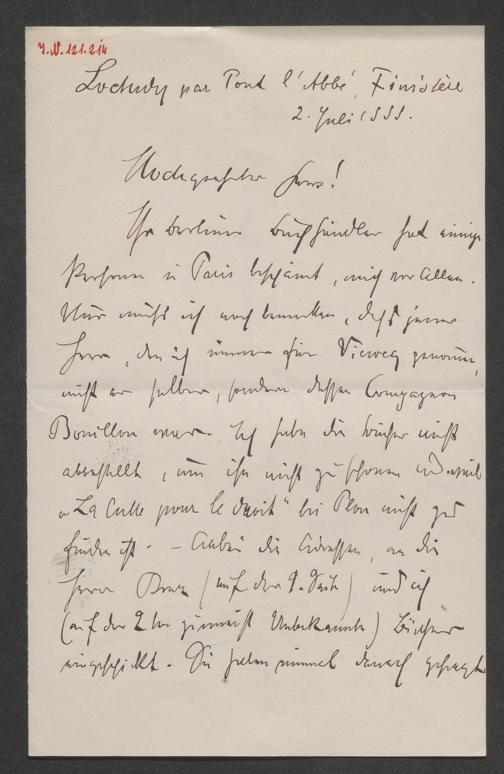 J.N. 121.214
Loctudy par Pont l'Abbé, Finistère
2. Juli 1888.
Hochgeehrter Herr!
Ihr Berliner Buchhändler hat einige
Personen in Paris beschämt, mich vor Allem.
Nur muß ich noch bemerken, daß jener
Herr, den ich immer für Vieweg genommen,
nicht er selber, sondern dessen Compagnon
Bouillon war. Ich habe die Bücher nicht
abbestellt, um ihn nicht zu und weil
"La Culte pour le droit" bei Plon nicht zu
finden ist. - Anbei die Adressen, an die
Herr (auf der 1. Seite) und ich
(auf der 2ten zumeist Unbekannte) Bücher
eingeschickt. Sie haben einmal danach gefragt